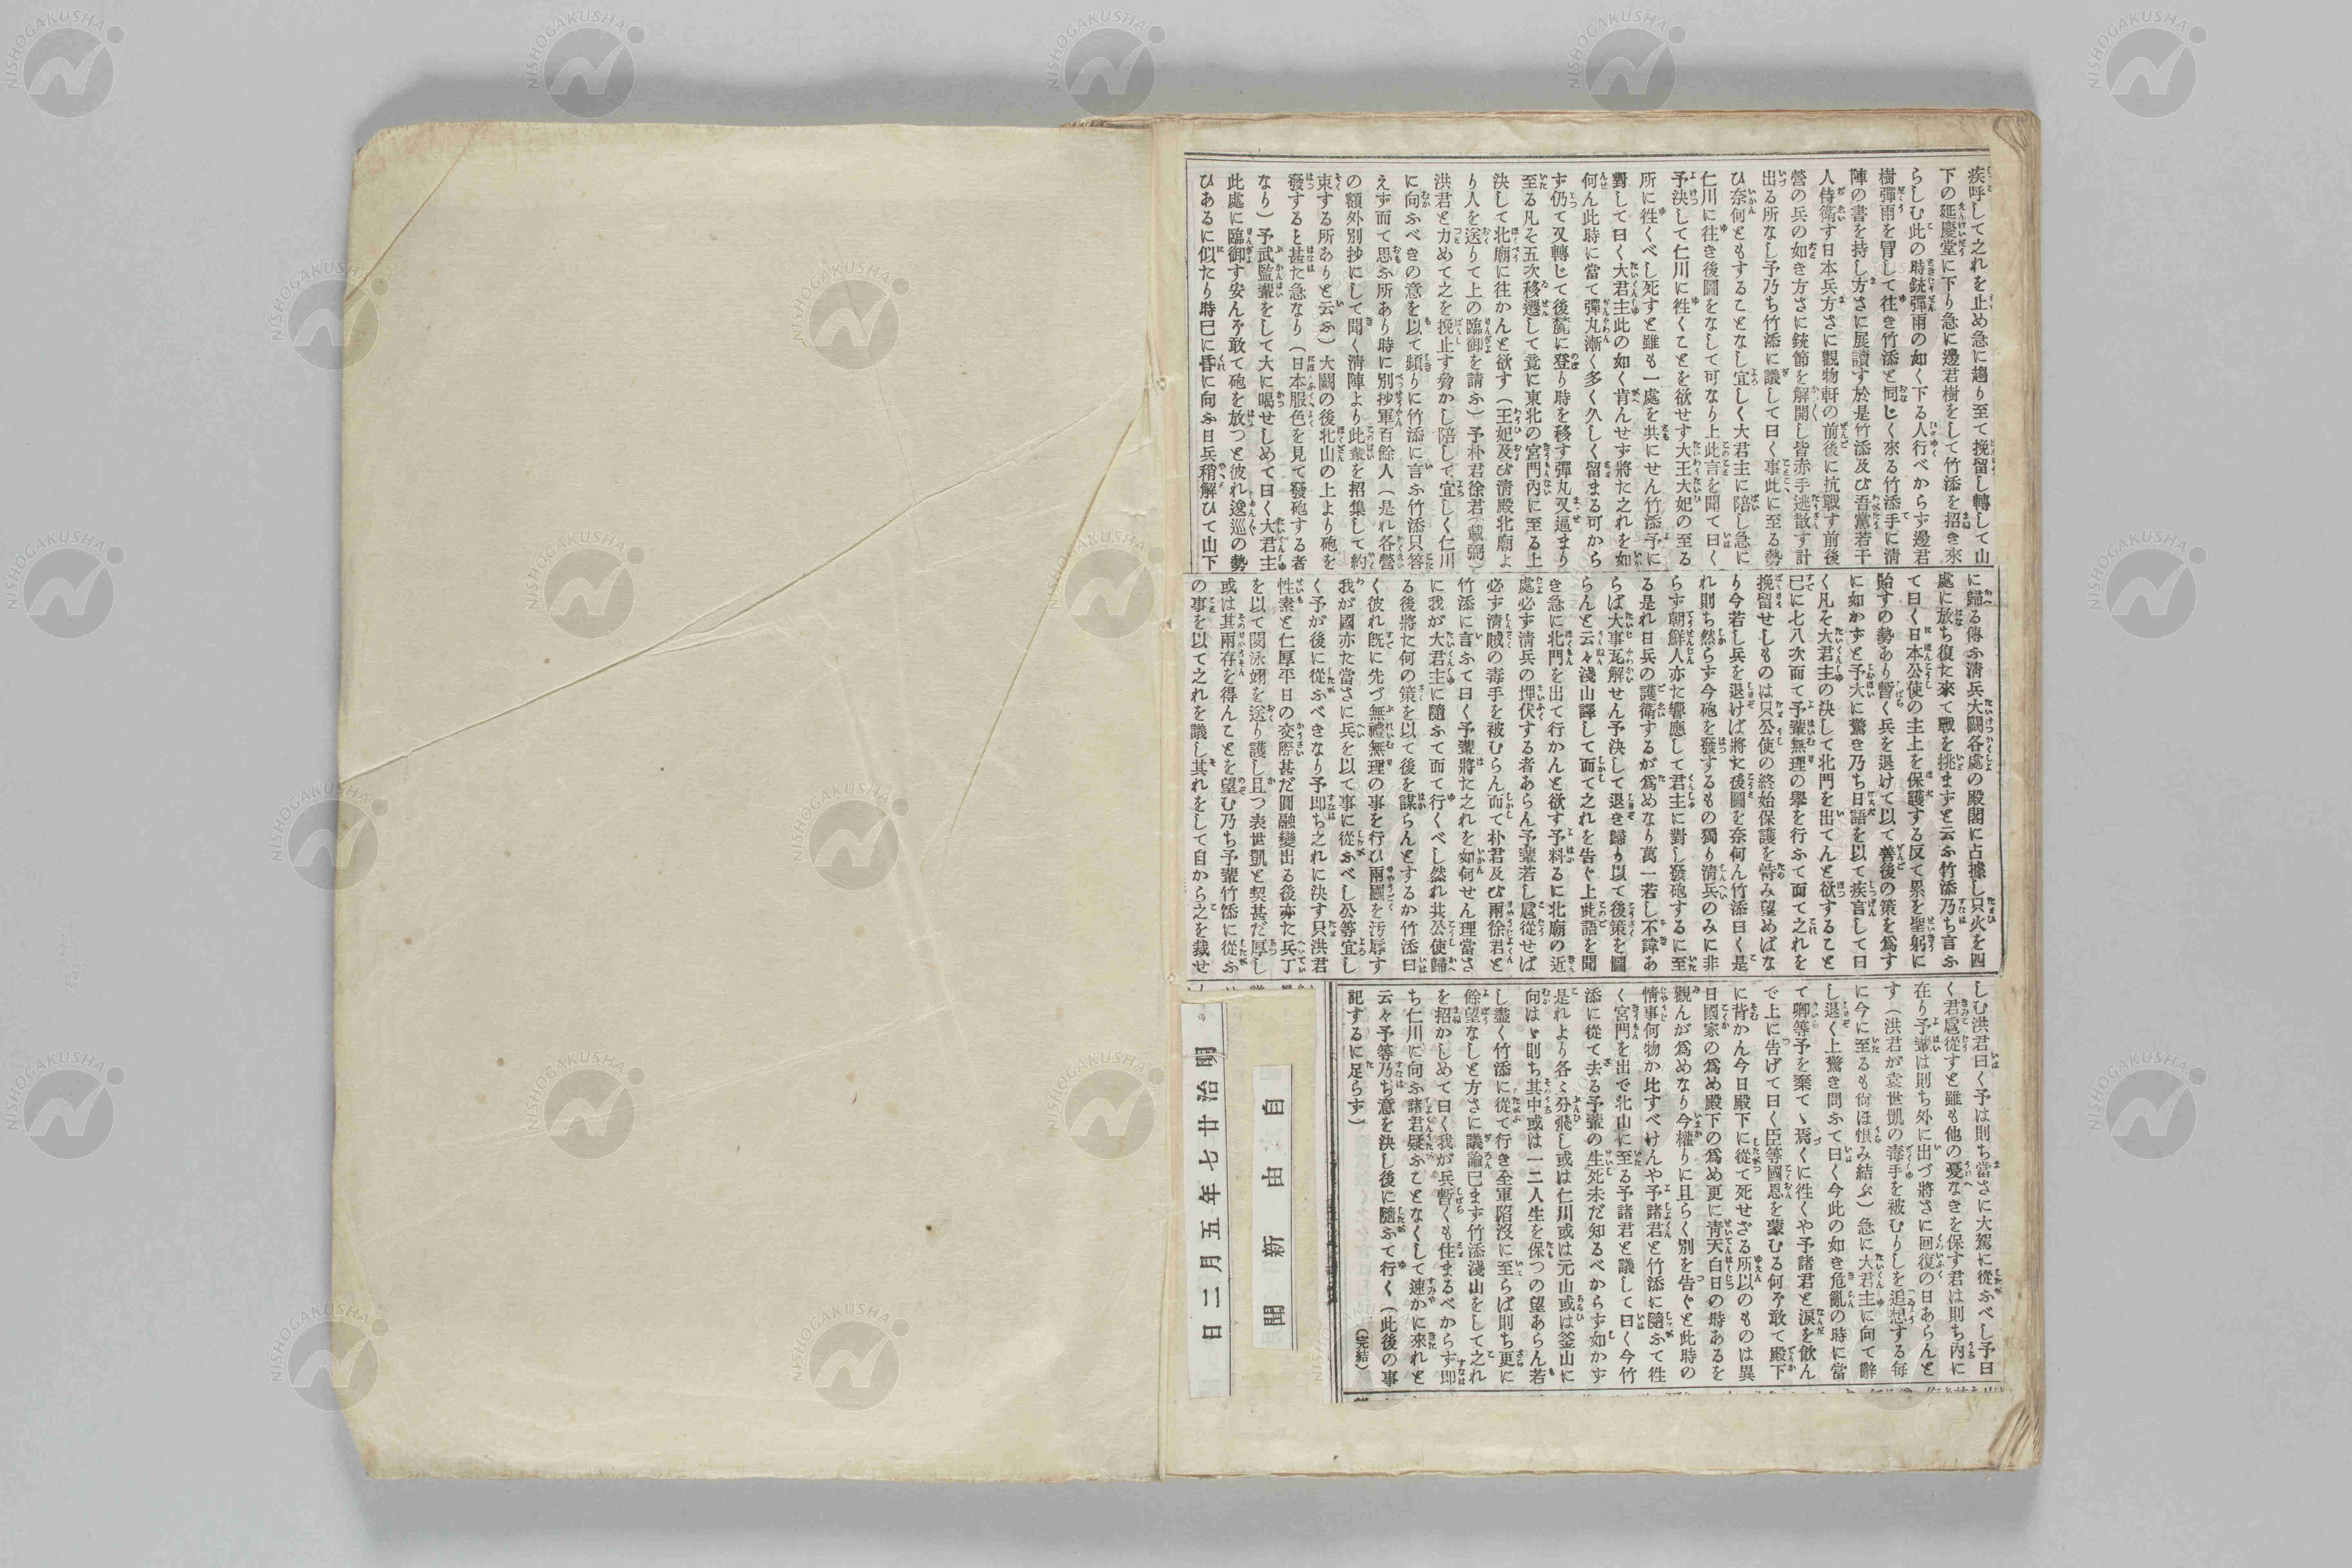 疾呼して之れを止め急に趨り至て挽留し轉して山
下の延慶堂に下り急に邊君樹をして竹添を招き來
らしむ此の時銃彈雨の如く下る人行べからず邊君
樹彈雨を冒して往き竹添と同じく來る竹添手に清
陣の書を持し方さに展讀す於是竹添及び吾黨若干
人侍衛す日本兵方さに觀物軒の前後に抗戰す前後
營の兵の如き方さに銃節を解開し皆赤手逃散す計
出る所なし予乃ち竹添に議して曰く事此に至る勢
ひ奈何ともすることなし宜しく大君主に陪し急に
仁川に往き後圖をなして可なり上此言を聞て曰く
予決して仁川に徃くことを欲せす大王大妃の至る
所に徃くべし死すと雖も一處を共にせん竹添予に
對して曰く大君主此の如く肯んせず將た之れを如
何ん此時に當て彈丸漸く多く久しく留まる可から
ず仍て又轉じて後麓に登り時を移す彈丸又逼まり
至る凡そ五次移遷して竟に東北の宮門內に至る上
決して北廟に往かんと欲す（王妃及び清殿北廟よ
り人を送りて上の臨御を請ふ）予朴君徐君（載弼）
洪君と力めて之を挽止す脅かし陪して宜しく仁川
に向ふべきの意を以て頻りに竹添に言ふ竹添只答
えず而て思ふ所あり時に別抄軍百餘人（是れ各營
の額外別抄にして聞く清陣より此輩を招集して約
束する所ありと云ふ）大闕の後北山の上より砲を
發すると甚た急なり（日本服色を見て發砲する者
なり）予武監輩をして大に喝せしめて曰く大君主
此處に臨御す安んぞ敢て砲を放つと彼れ逡巡の勢
ひあるに似たり時已に昏に向ふ日兵稍解ひて山下
に歸る傳ふ淸兵大闕各處の殿閣に占據し只火を四
處に放ち復た來て戰を挑まずと云ふ竹添乃ち言ふ
て曰く日本公使の主上を保護する反て累を聖躬に
貽すの勢あり暫く兵を退けて以て善後の策を爲す
に如かずと予大に驚き乃ち日語を以て疾言して曰
く凡そ大君主の決して北門を出てんと欲すること
已に七八次而て予輩無理の擧を行ふて而て之れを
挽留せしものは只公使の終始保護を恃み望めばな
り今若し兵を退けば將た後圖を奈何ん竹添曰く是
れ則ち然らず今砲を發するもの獨り淸兵のみに非
らず朝鮮人亦た響應して君主に對し發砲するに至
る是れ日兵の護衛するが爲めなり萬一若し不諱あ
らば大事瓦解せん予決して退き歸り以て後策を圖
らんと云々淺山譯して而て之れを告ぐ上此語を聞
き急に北門を出て行かんと欲す予料るに北廟の近
處必ず淸兵の埋伏する者あらん予輩若し扈從せば
必ず淸賊の毒手を被むらん而て朴君及び兩徐君と
竹添に言ふて曰く予輩將た之れを如何せん理當さ
に我が大君主に隨ふて而て行くべし然れ共公使歸
る後將た何の策を以て後を謀らんとするか竹添曰
く彼れ旣に先づ無禮無理の事を行ひ兩國を汚辱す
我が國亦た當さに兵を以て事に從ふべし公等宜し
く予が後に從ふべきなり予即ち之れに決す只洪君
性素と仁厚平日の交際甚だ圓融變出る後亦た兵丁
を以て閔泳翊を送り護し且つ袁世凱と契甚だ厚し
或は其兩存を得んことを望む乃ち予輩竹添に從ふ
の事を以て之れを議し其れをして自から之を裁せ
しむ洪君曰く予は則ち當さに大駕に從ふべし予曰
く君扈從すと雖も他の憂なきを保す君は則ち內に
在り予輩は則ち外に出づ將さに回復の日あらんと
す（洪君が袁世凱の毒手を被むりしを追想する每
に今に至るも尙ほ恨み結ぶ）急に大君主に向て辭
し退く上驚き問ふて曰く今此の如き危亂の時に當
て卿等予を棄てゝ焉くに徃くや予諸君と淚を飮ん
で上に告げて曰く臣等國恩を蒙むる何ぞ敢て殿下
に背かん今日殿下に從て死せざる所以のものは異
日國家の爲め殿下の爲め更に靑天白日の時あるを
觀んが爲めなり今權りに且らく別を告ぐと此時の
情事何物か比すべけんや予諸君と竹添に隨ふて徃
く宮門を出で北山に至る予諸君と議して曰く今竹
添に從て去る予輩の生死未だ知るべからず如かず
是れより各々分飛し或は仁川或は元山或は釜山に
向はゞ則ち其中或は一二人生を保つの望あらん若
し盡く竹添に從て行き全軍陷沒に至らば則ち更に
餘望なしと方さに議論已まず竹添淺山をして之れ
を招かしめて曰く我が兵暫くも住まるべからず即
ち仁川に向ふ諸君疑ふことなくして速かに來れと
云々予等乃ち意を決し後に隨ふて行く（此後の事
記するに足らず）
（完結）
自由新聞
明治廿七年五月二日
NISHOGAKUSHA